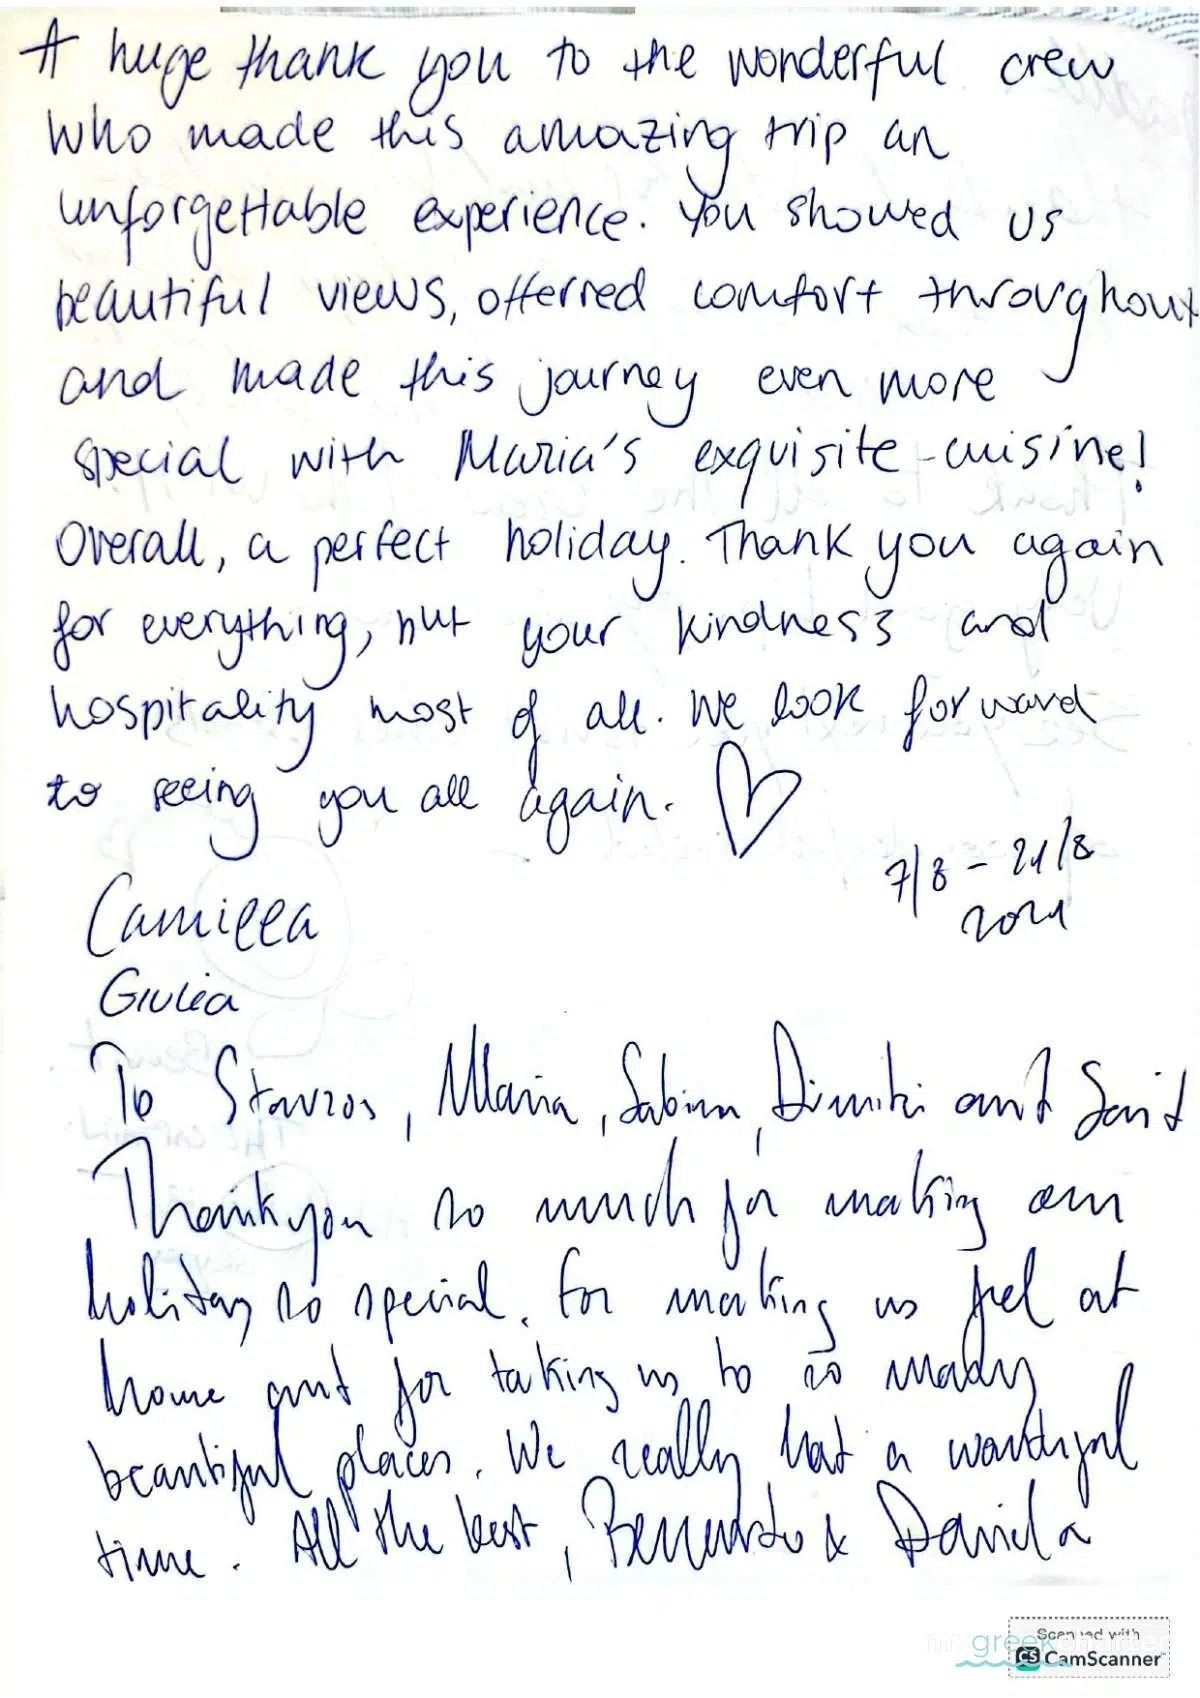 A huge thank you to the wonderful crew
who made this amazing trip an
unforgettable experience. You showed us
beautiful views, offerred comfort throughout
and made this journey even more
special with Maria's exquisite cuisine!
Overall, a perfect holiday. Thank you again
for everything, but your kindness and
hospitality most of all. We look forward
to seeing you all again.
7/8 - 21/8
2021
Camilla
Giulia
To Stavros, Maria, Sabina, Dimitri and Said
Thank you so much for making our
holiday so special. For making us feel at
home and for taking us to so many
beautiful places. We really had a wonderful
time. All the best, & Daniela
Scanned with
my greek charter
CS CamScanner